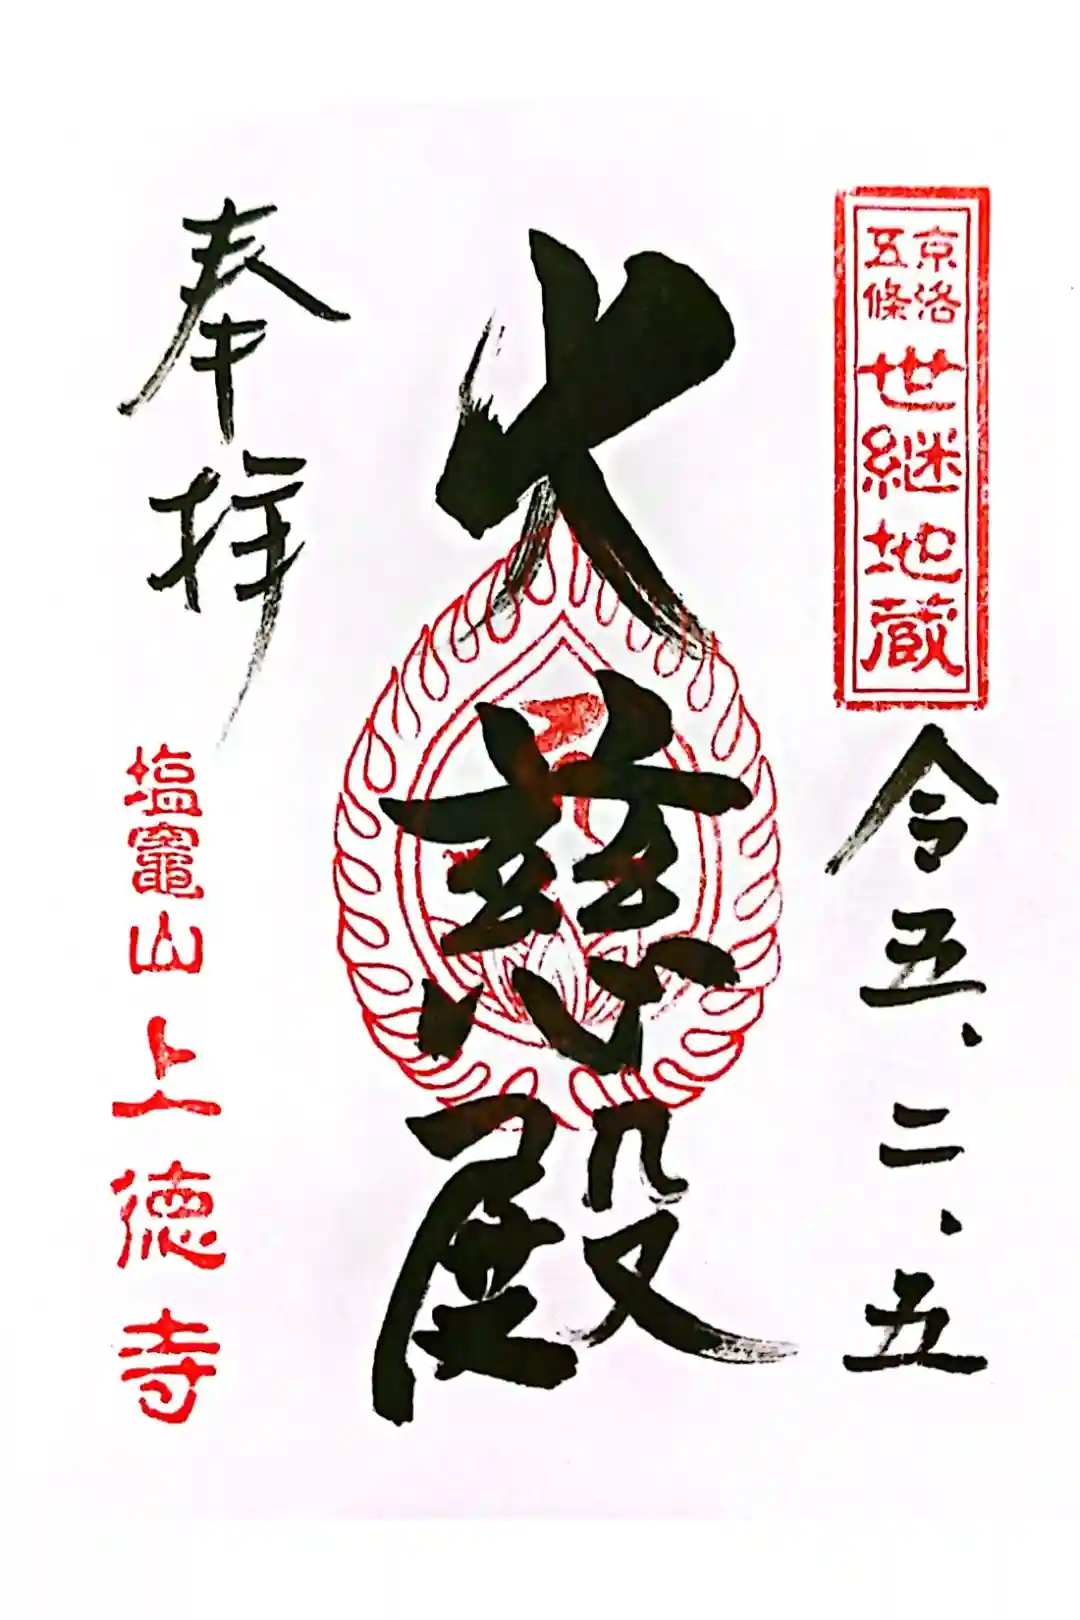 京洛
五條
世継地蔵
令五、二、五
大慈殿
奉拝
塩竈山 上徳寺